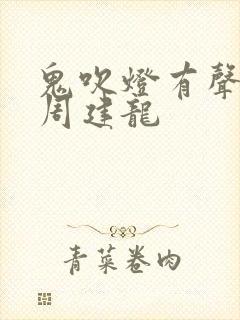 鬼吹燈有聲
周建龍
青菜卷肉